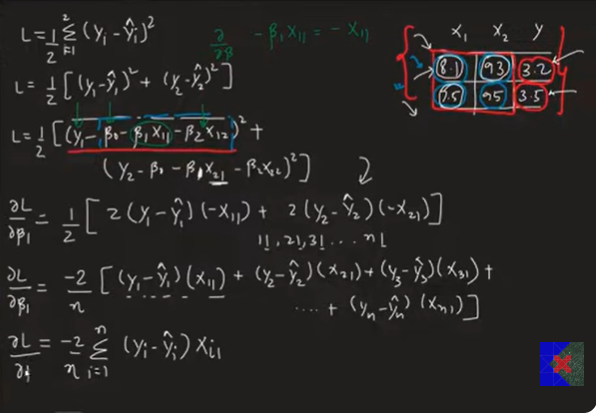 L = 1/2 2Σi=1 (yi - ŷi)²
∂/∂β - β1 X11 = - X11
X1 X2 Y
8.1 93 3.2
7.5 95 3.5
L = 1/2 [(y1 - ŷ1)² + (y2 - ŷ2)²]
L = 1/2 [(y1 - β0 - β1 X11 - β2 X12)² +
(y2 - β0 - β1 X21 - β2 X22)²]
2
∂L/∂β1 = 1/2 [2 (y1 - ŷ1)(-X11) + 2 (y2 - ŷ2)(-X21)]
11, 21, 31 ... n1
∂L/∂β1 = -2/n [(y1 - ŷ1)(X11) + (y2 - ŷ2)(X21) + (y3 - ŷ3)(X31) +
... + (yn - ŷn)(Xn1)]
∂L/∂ = -2/n nΣi=1 (yi - ŷi) Xi1